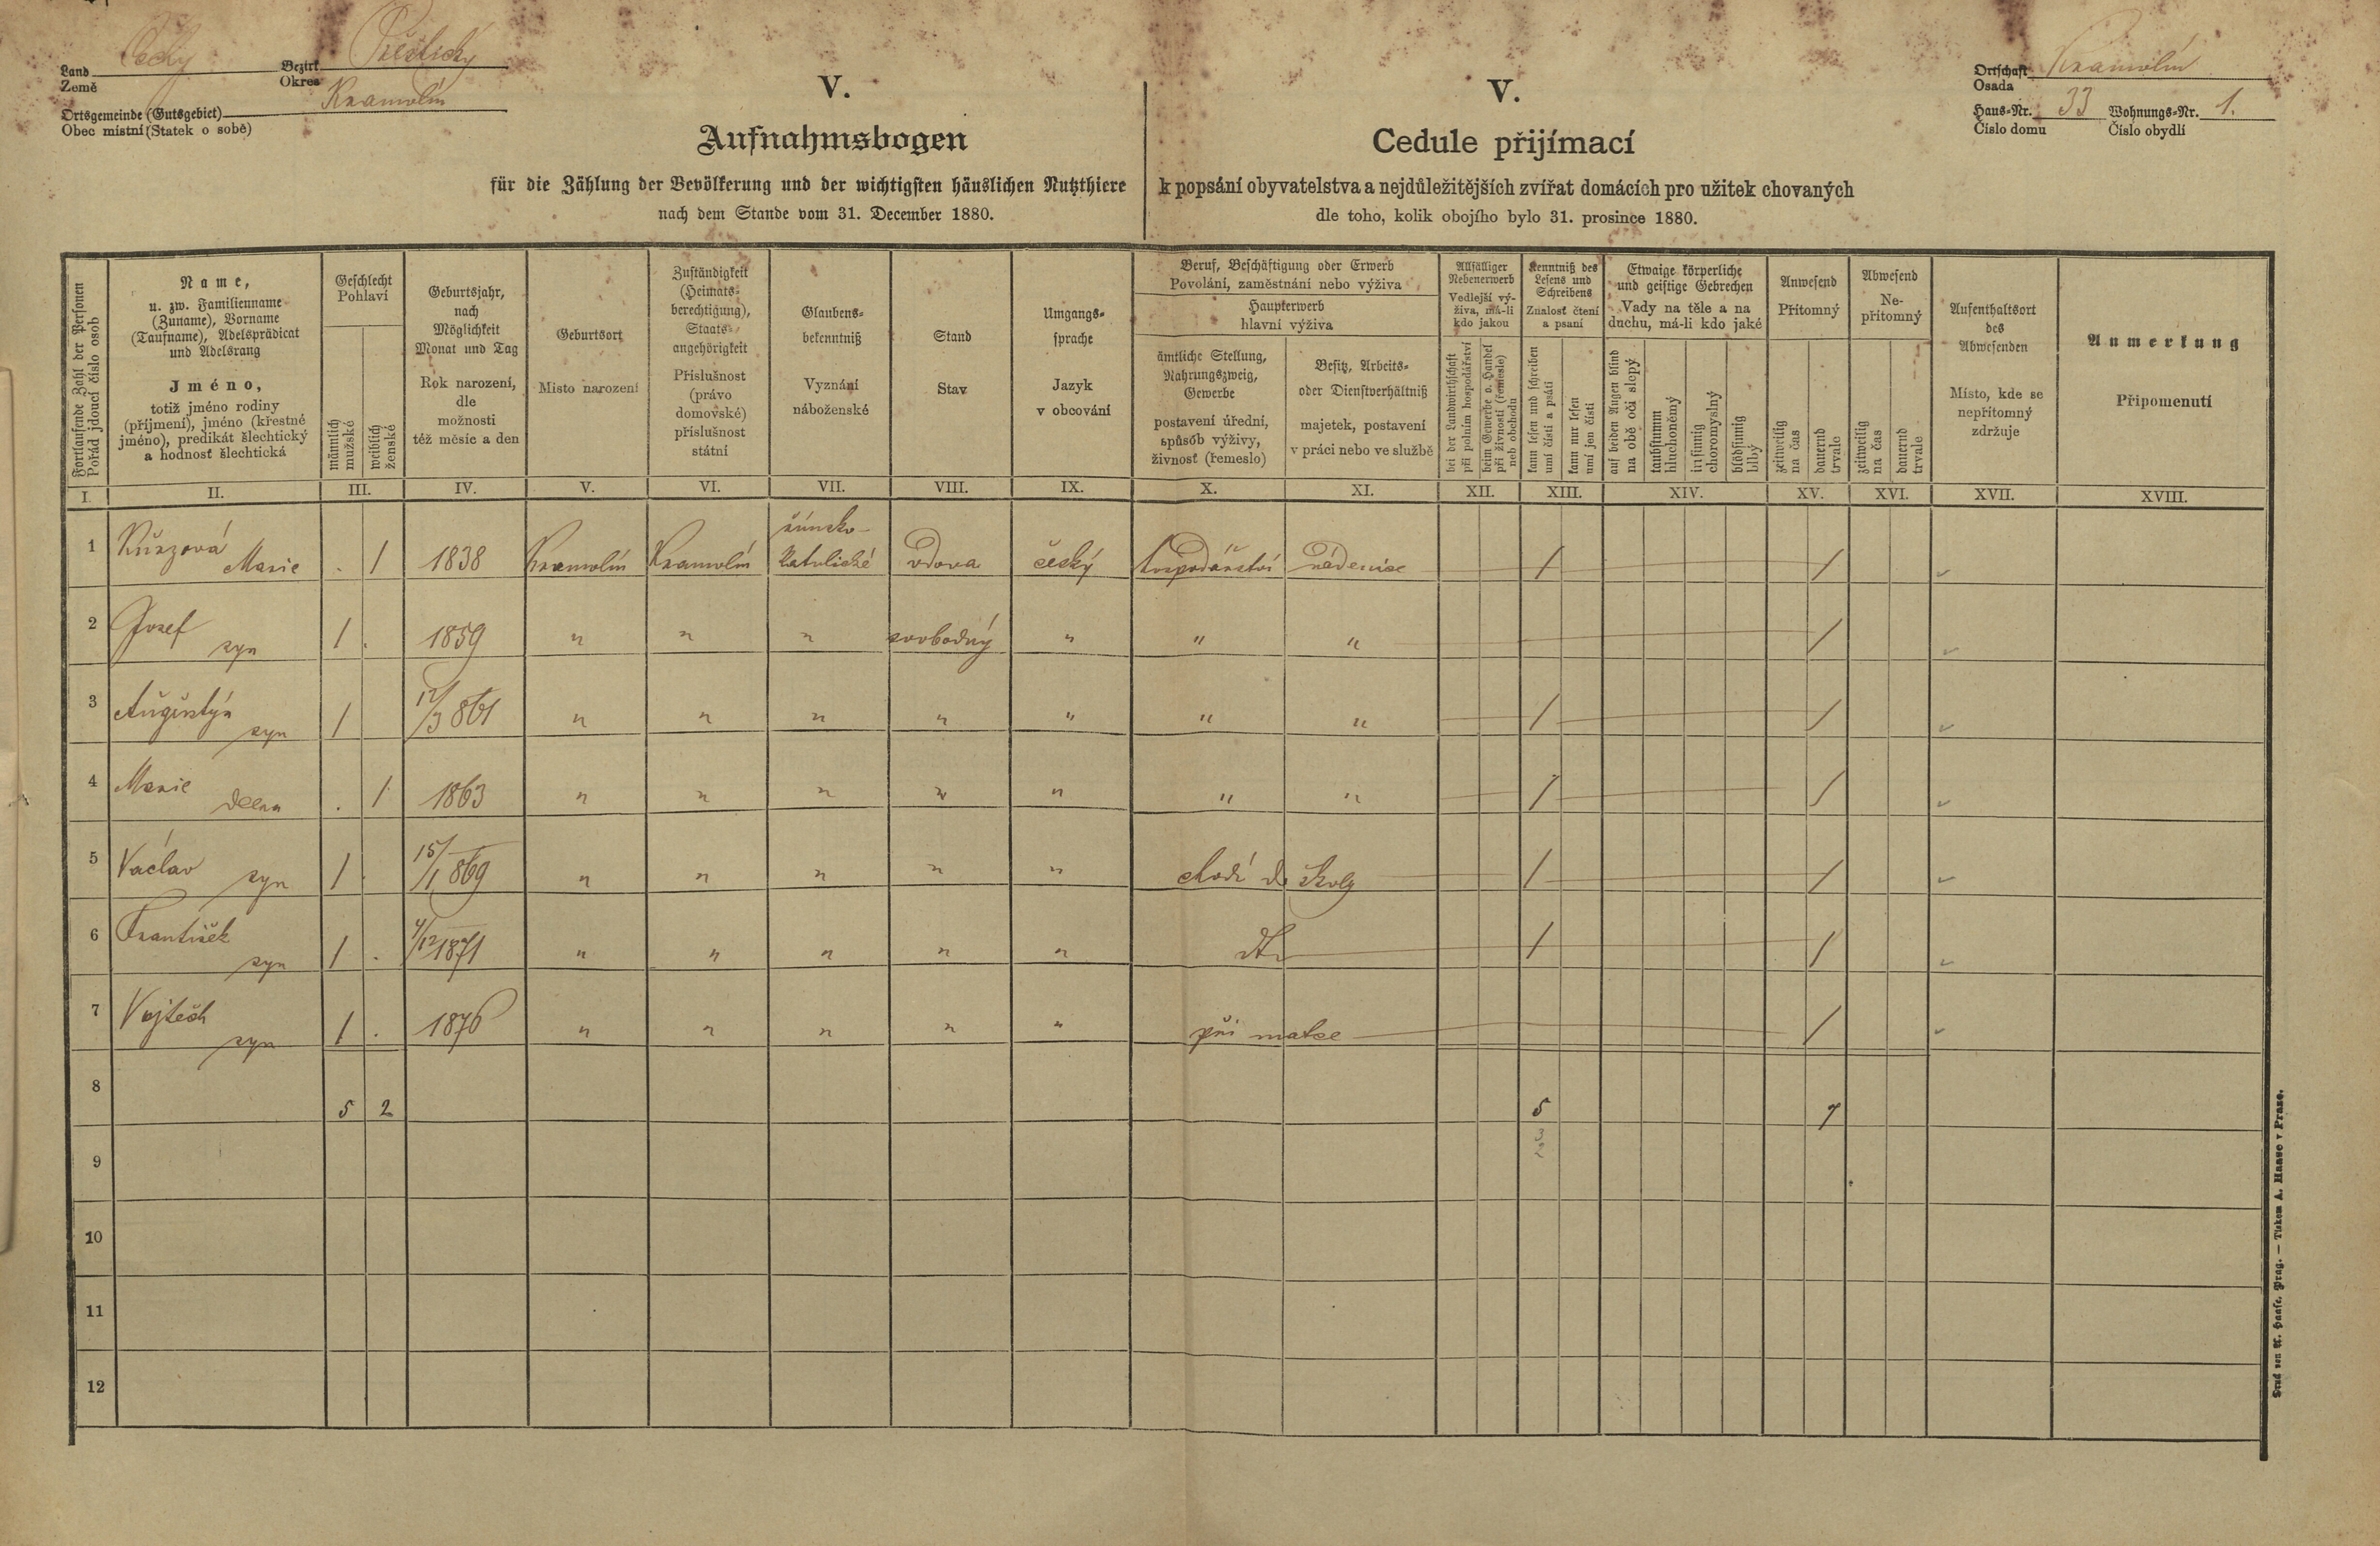 Land Čechy Bezirk Přeštický
Země Okres
Ortsgemeinde (Gutsgebiet) Kramolín
Obec místní (Statek o sobě)
V.
Aufnahmsbogen
für die Zählung der Bevölkerung und der wichtigsten häuslichen Nutzthiere
nach dem Stande vom 31. December 1880.
V.
Cedule přijímací
k popsání obyvatelstva a nejdůležitějších zvířat domácích pro užitek chovaných
dle toho, kolik obojího bylo 31. prosince 1880.
Ortschaft Kramolín
Osada
Haus-Nr. 33 Wohnungs-Nr. 1.
Číslo domu Číslo obydlí
Fortlaufende Zahl der Personen
Pořád jdoucí číslo osob
Name,
u. zw. Familienname
(Zuname), Vorname
(Taufname), Adelsprädicat
und Adelsrang
Jméno,
totiž jméno rodiny
(příjmení), jméno (křestné
jméno), predikát šlechtický
a hodnosť šlechtická
Geschlecht
Pohlaví
männlich
mužské
weiblich
ženské
Geburtsjahr,
nach
Möglichkeit
Monat und Tag
Rok narození,
dle
možnosti
též měsíc a den
Geburtsort
Místo narození
Zuständigkeit
(Heimats-
berechtigung),
Staats-
angehörigkeit
Příslušnost
(právo
domovské)
příslušnost
státní
Glaubens-
bekenntniß
Vyznání
náboženské
Stand
Stav
Umgangs-
sprache
Jazyk
v obcování
Beruf, Beschäftigung oder Erwerb
Povolání, zaměstnání nebo výživa
Haupterwerb
hlavní výživa
ämtliche Stellung,
Nahrungszweig,
Gewerbe
postavení úřední,
způsób výživy,
živnosť (řemeslo)
Besitz, Arbeits-
oder Dienstverhältniß
majetek, postavení
v práci nebo ve službě
Allfälliger
Nebenerwerb
Vedlejší vý-
živa, má-li
kdo jakou
bei der Landwirthschaft
při polním hospodářství
beim Gewerbe o. Handel
při živnosti (řemesle)
neb obchodu
Kenntniß des
Lesens und
Schreibens
Znalosť čtení
a psaní
kann lesen und schreiben
umí čísti a psáti
kann nur lesen
umí jen čísti
Etwaige körperliche
und geistige Gebrechen
Vady na těle a na
duchu, má-li kdo jaké
auf beiden Augen blind
na obě oči slepý
taubstumm
hluchoněmý
irrsinnig
choromyslný
blödsinnig
blbý
Anwesend
Přítomný
zeitweilig
na čas
dauernd
trvale
Abwesend
Ne-
přítomný
zeitweilig
na čas
dauernd
trvale
Aufenthaltsort
des
Abwesenden
Místo, kde se
nepřítomný
zdržuje
Anmerkung
Připomenutí
I. II. III. IV. V. VI. VII. VIII. IX. X. XI. XII. XIII. XIV. XV. XVI. XVII. XVIII.
1 Marie . / 1838 Kramolín Kramolín římsko-katolické vdova český hospodářství nádenice / /
2 Josef syn / . 1859 " " " svobodný " " " /
3 Augustýn syn / 12/3 861 " " " " " " " / /
4 Marie dcera . / 1863 " " " " " " " / /
5 Václav syn / . 15/1 869 " " " " " chodí do školy / /
6 František syn / . 4/12 1871 " " " " " dto / /
7 Vojtěch syn / . 1876 " " " " " při matce /
8 5 2 5 7
9
10
11
12
Druck von A. Haase, Prag. — Tiskem A. Haase v Praze.